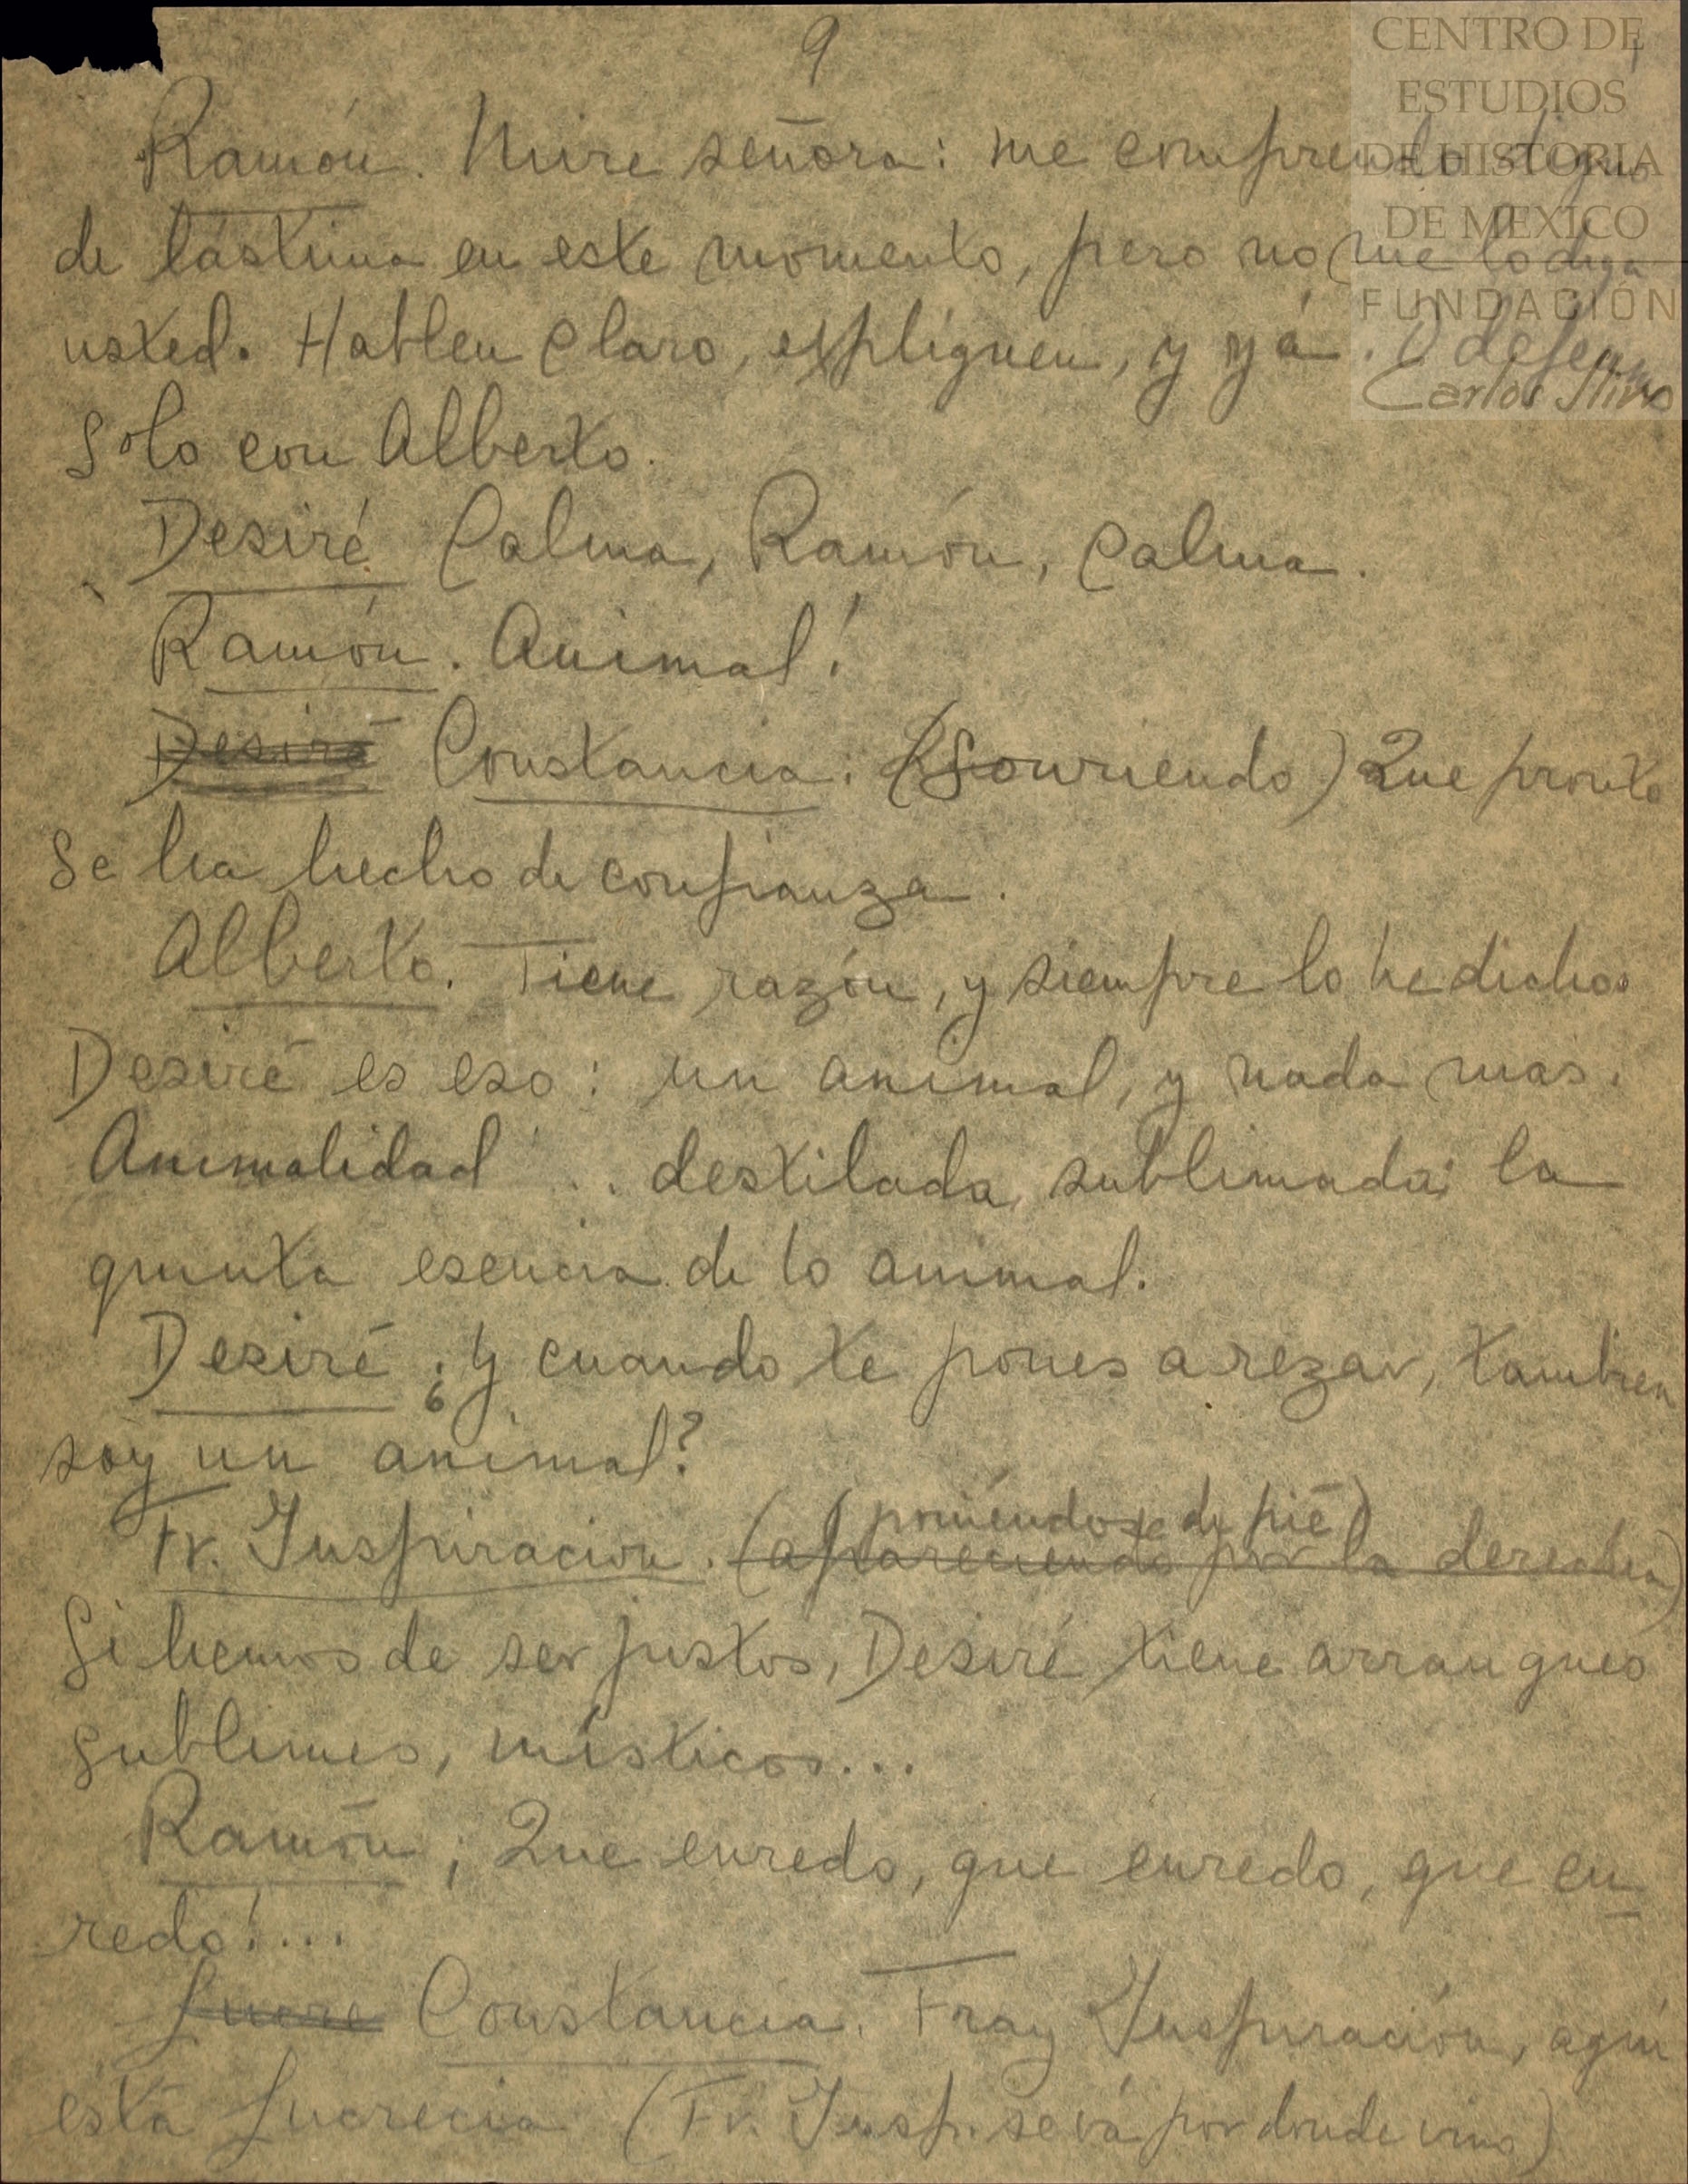 9
CENTRO DE
ESTUDIOS
DE HISTORIA
DE MEXICO
FUNDACIÓN
Carlos Slim
Ramón. Mire señora: me comprendo digno
de lástima en este momento, pero no me lo diga
usted. Hablen claro, expliquen, y yá. O dejenme
solo con Alberto.
Desiré Calma, Ramón, calma.
Ramón. Animal!
Desiré Constancia: (Sonriendo) Que pronto
se ha hecho de confianza.
Alberto. Tiene razón, y siempre lo he dicho:
Desiré es eso: un animal, y nada mas.
Animalidad ... destilada, sublimada; la
quinta esencia de lo animal.
Desiré ¿Y cuando te pones a rezar, tambien
soy un animal?
(poniéndose de pié)
Fr. Inspiracion. (apareciendo por la derecha)
Si hemos de ser justos, Desiré tiene arranques
sublimes, místicos...
Ramón ¡Que enredo, que enredo, que en
redo!...
Lucre Constancia. Fray Inspiración, aquí
está Lucrecia (Fr. Insp. se vá por donde vino)